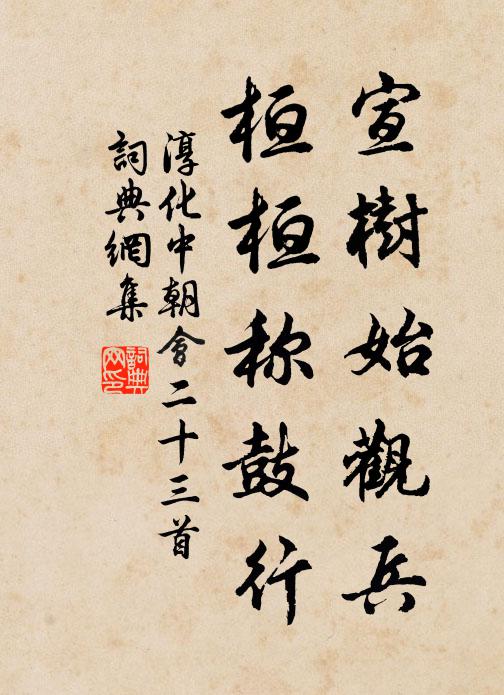 宣樹始觀兵
桓桓称鼓行
淳化中朝會二十三首
詞典網集
詞典網印